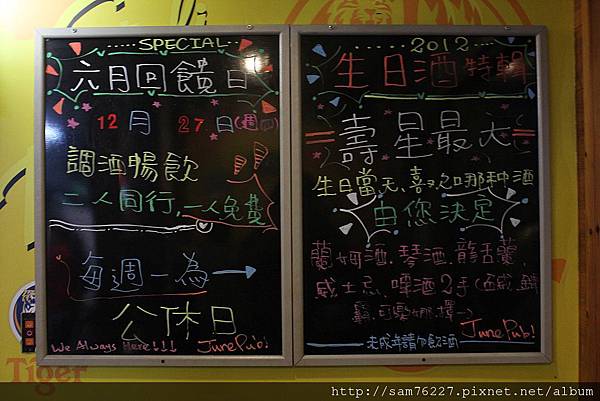 SPECIAL
六月回饋日
12月 27日(週四)
調酒暢飲
二人同行,一人免費
每週一為
公休日
We Always Here!!!
JunePub!
2012
生日酒特輯
壽星最大
生日當天,喜歡哪種酒
由您決定
蘭姆酒.琴酒.龍舌蘭.
威士忌.啤酒2手(
擇一)
JunePub!
未成年請勿飲酒
Tiger
http://sam76227.pixnet.net/album